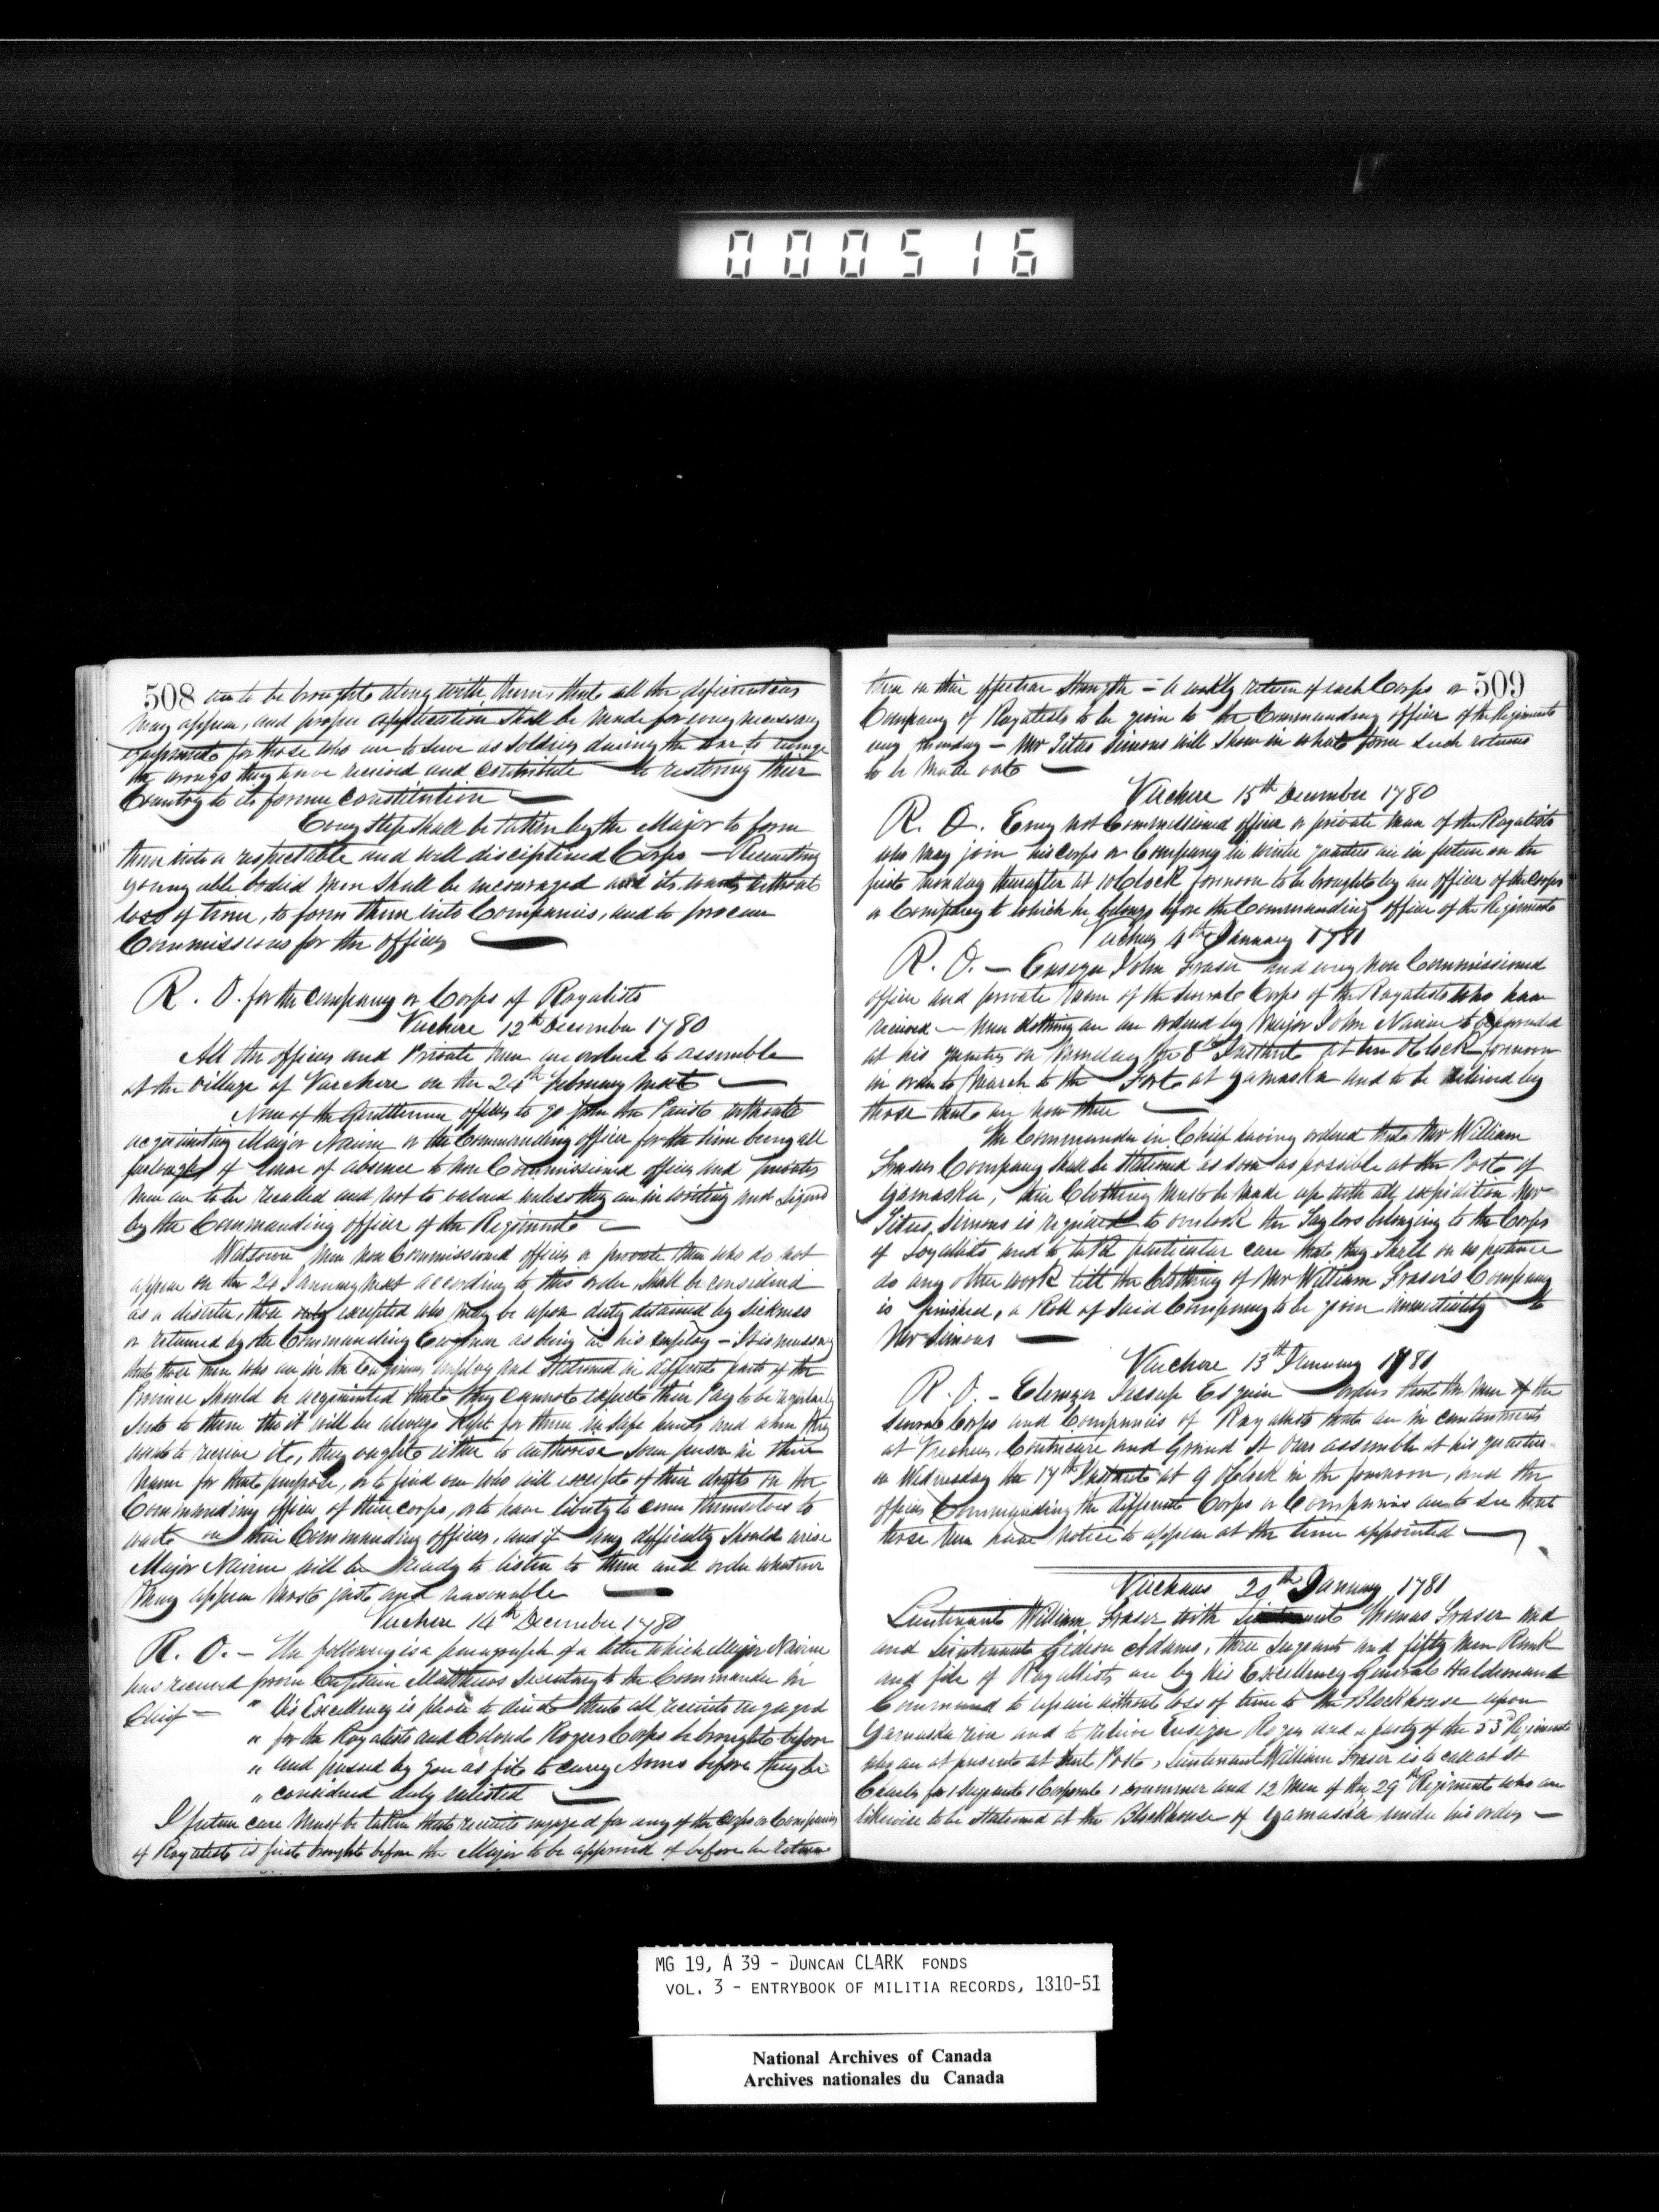 000516
508 are to be brought along with them, that all the deficiencies
may appear, and proper application shall be made for every necessary
equipment for those who are to serve as Soldiers during the war to revenge
the wrongs they have received and contribute to restoring their
Country to its former Constitution —
Every Step shall be taken by the Major to form
them into a respectable and well disciplined Corps — Recruiting
young able bodied men shall be encouraged and its wants without
loss of time, to form them into Companies, and to procure
Commissions for the officers —
R. O. for the Company or Corps of Royalists
Verchere 12th December 1780
All the officers and Private men are ordered to assemble
at the Village of Varchere on the 24th February next —
None of the Gentlemen officers to go from the Parish without
acquainting Major Nairne or the Commanding officer for the time being all
furloughs of leave of absence to non Commissioned officers and private
men are to be recalled and not to valued unless they are in writing and signed
by the Commanding officer of the Regiment —
Watsover men non Commissioned officers or private men who do not
appear on the 24 January next according to this order, shall be considered
as a deserter, those only excepted who may be upon duty detained by sickness
or returned by the Commanding Engineer as being in his employ – It is necessary
that those men who are in the Engineers employ and Stationed in different parts of the
Province should be acquainted that they cannot expect their Pay to be regularly
sent to them tho it will be always kept for them in safe hands and when they
want to receive it, they ought either to authorise some person in their
name for that purpose, or to find one who will except of their draft on the
Commanding officer of their corps, or to have liberty to come themselves to
wait on their Commanding officers, and if any difficulty should arise
Major Nairne will be ready to listen to them and order whatever
may appear most just and reasonable —
Verchere 14th December 1780
R. O. – The following is a paragraph of a letter which Major Nairne
has received from Captain Matthews Secretary to the Commander in
Chief – " His Excellency is pleased to direct that all recruits engaged
" for the Royalists and Colonel Rogers Corps be brought before
" and passed by you as fit to carry Arms before they be
" considered duly enlisted —
I future care must be taken that recruits engaged for any of the Corps or Companies
of Royalists is first brought before the Major to be approved of before he return
them in their effective Strength – A weekly return of each Corps or 509
Company of Royalists to be given to the Commanding officer of the Regiment
every monday – Mr Titus Simons will show in what form such returns
to be made out —
Verchere 15th December 1780
R. O. Every not Commissioned officer or private man of the Royalists
who may join his Corps or Company in winter quarters are in future on the
first monday thereafter at 10 Clock forenoon to be brought by an officer of the Corps
or Company to which he belongs before the Commanding officer of the Regiment
4th January 1781
R. O. – Ensign John Fraser and every non Commissioned
officer and private man of the several Corps of the Royalists who have
received – new clothing are ordered by Major John Nairne to be paraded
at his quarters on monday the 8th Instant at ten O Clock forenoon
in order to March to the Fort at Yamaska and to be relieved by
those that are now there —
The Commander in Chief having ordered that Mr William
Frasers Company shall be Stationed as soon as possible at the Post of
Yamaska, their Clothing must be made up with all expedition Mr
Titus Simons is required to overlook the Taylors belonging to the Corps
of Loyalists and to take particular care that they shall on no pretence
do any other work till the Clothing of Mr William Fraser's Company
is finished, a Roll of said Company to be given immediately to
Mr Simons —
Verchere 13th January 1781
R. O. – Ebenezer Jessup Esquire orders that the men of the
several Corps and Companies of Royalists that are in cantonments
at Verchere, Contrecure and Grand St Ours assemble at his quarters
on Wednesday the 17th Instant at 9 OClock in the forenoon, and the
officers Commanding the different Corps or Companies are to see that
those men have notice to appear at the time appointed —
20th January 1781
Lieutenant William Fraser with Lieutenant Thomas Fraser and
and Lieutenant Gideon Adams, three Sergeants and fifty men Rank
and file of Royalists are by His Excellency General Haldemand
Command to repair without loss of time to the Blockhouse upon
Yamaska river and to relieve Ensign Rogers and a party of the 53d Regiment
who are at present at that Post, Lieutenant William Fraser is to call at St
Charles for 1 Sergeant 1 Corporal 1 Drummer and 12 Men of the 29th Regiment who are
likewise to be Stationed at the Blockhouse of Yamaska under his orders —
MG 19, A 39 - DUNCAN CLARK FONDS
VOL. 3 - ENTRYBOOK OF MILITIA RECORDS, 1810-51
National Archives of Canada
Archives nationales du Canada